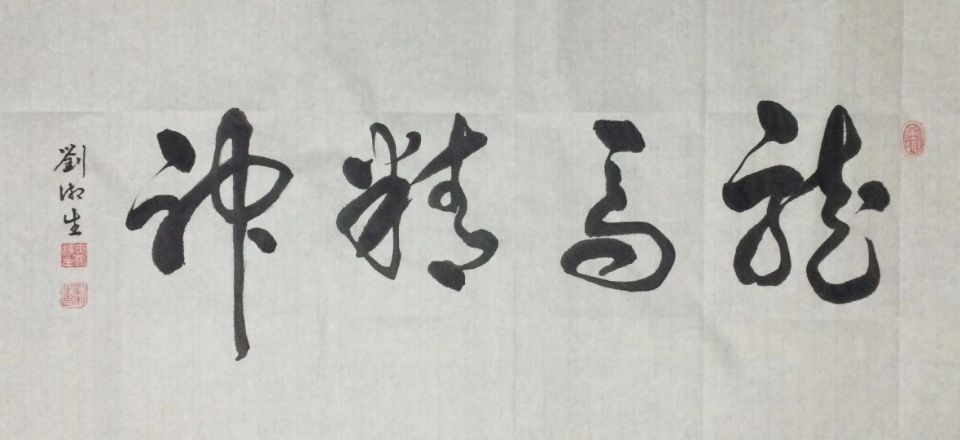 龍馬精神
劉湘生